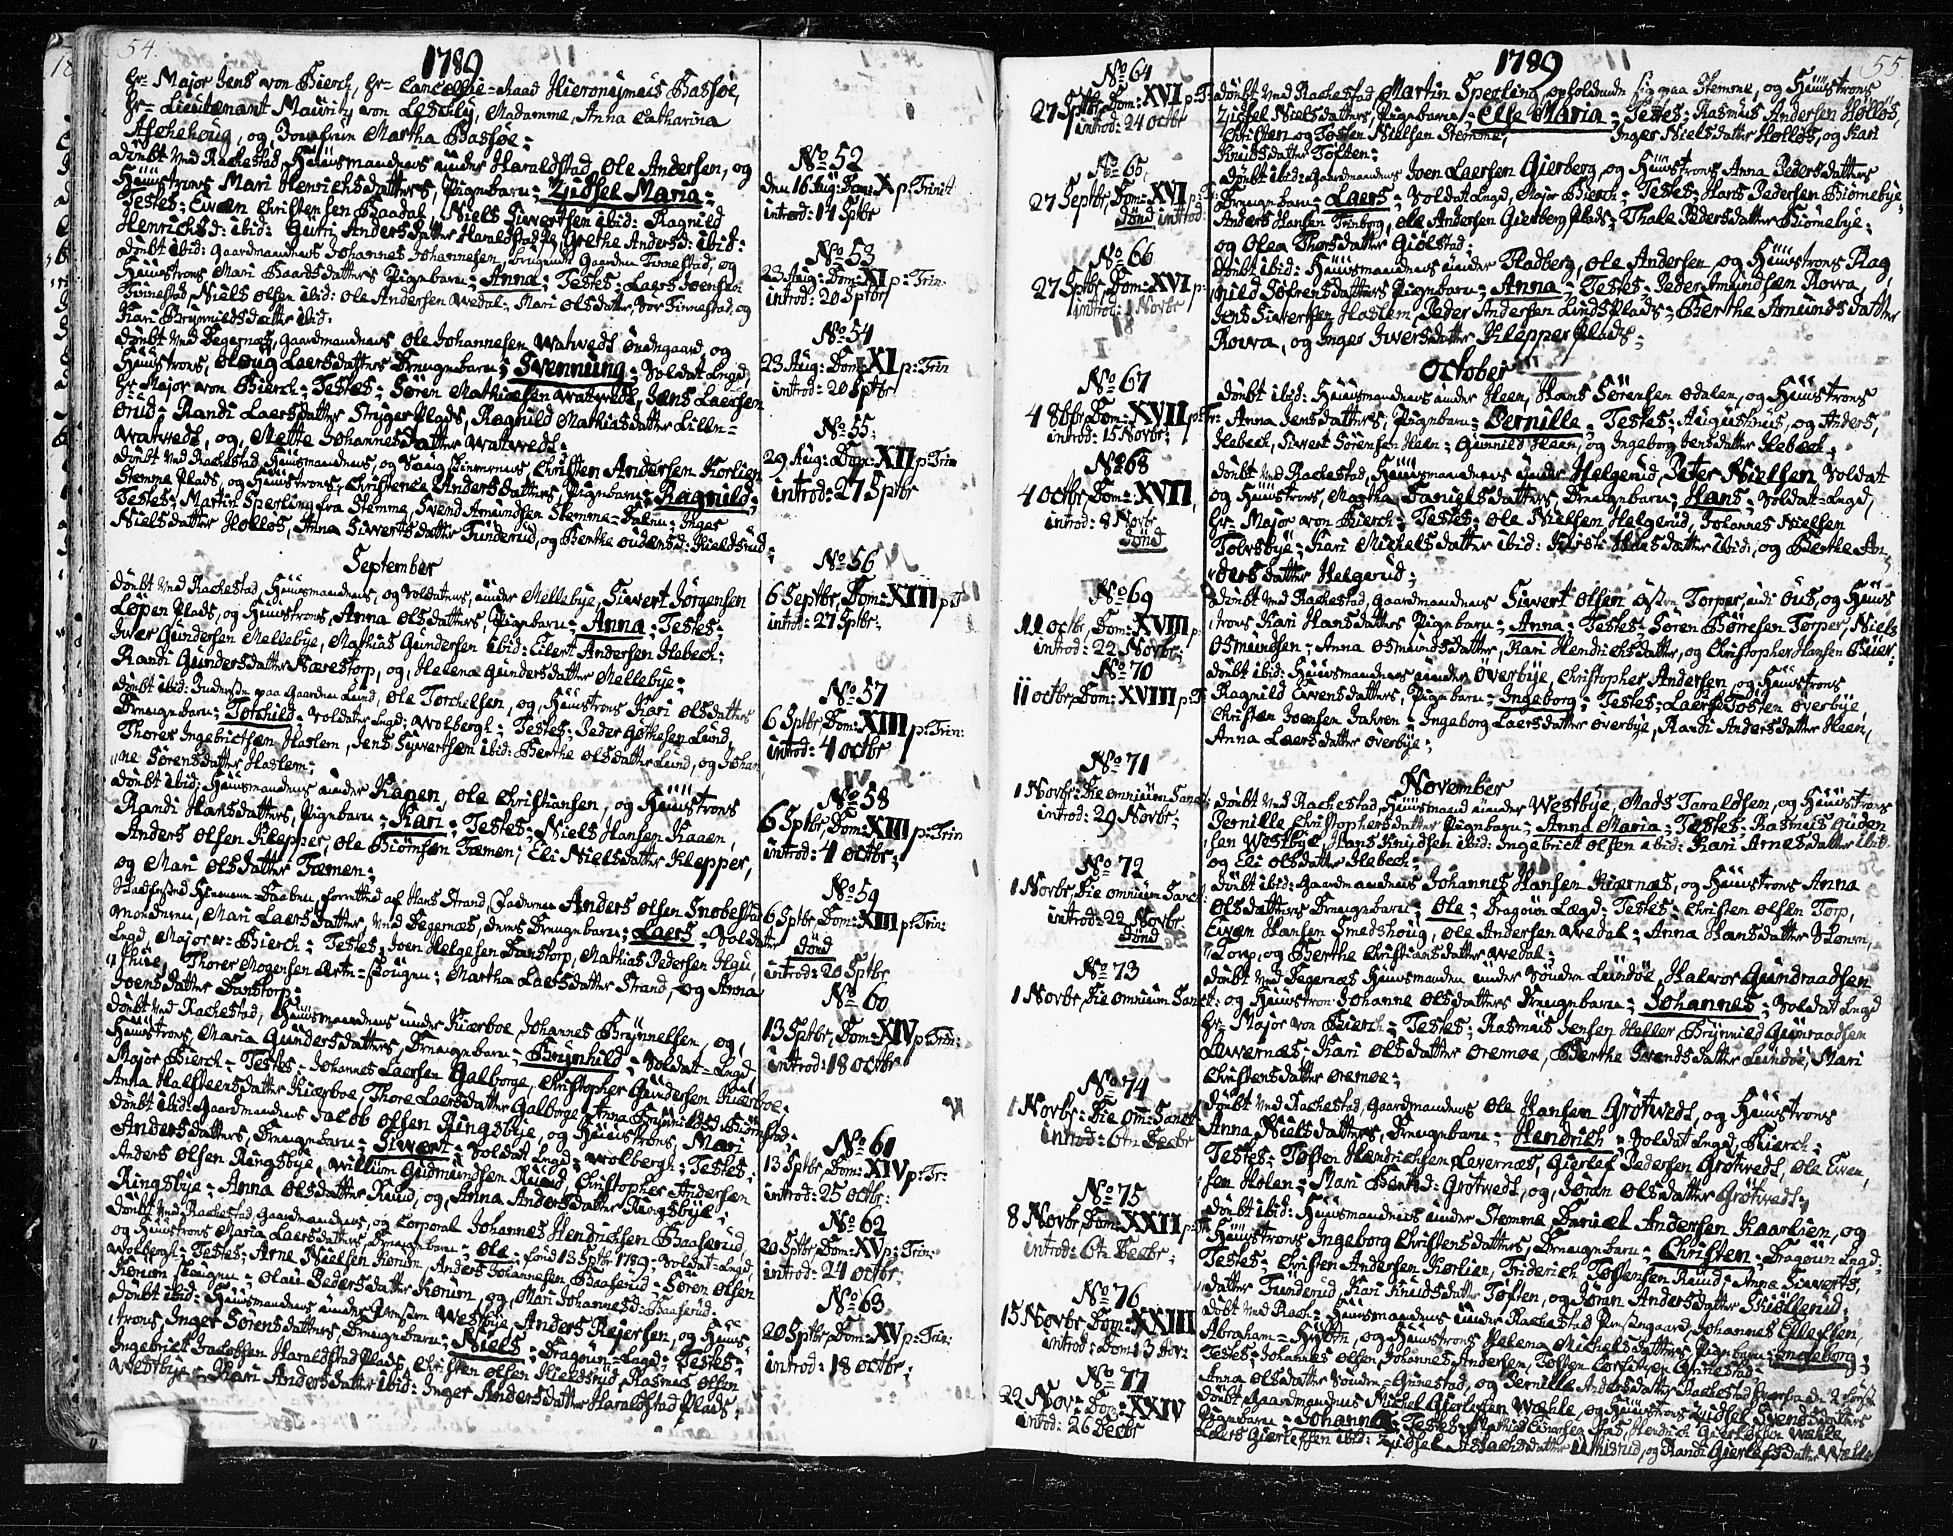 54.
1789
Hr= Major Jens von Bierch, Hr= Cancellie=Raad Hieronijmus Bassøe,
Hr= Lieutenant Mauritz von Leschly, Madamme, Anna Catharina
Aschehoug, og Jomfrue Martha Bassøe:
Døubt ved Rachestad, Huusmandens under Haraldstad Ole Andersen, og
Huustroes Mari Henrichsdatters, Pigebarn: Zidsel Maria:
Testes: Ewen Christensen Baadal, Niels Siwertsen ibid: Ragnild
Henrichsd: ibid: Guri Andersdatter Haraldstad Pl, Grethe Andersd: ibid:
Døubt ibid: Gaardmandens Johannes Johannesen, brugende Gaarden Finnestad, og
Huustroes Mari Baardsdatters Pigebarn: Anna: Testes: Laers Joensen
Finnestad, Niels Olsen ibid: Ole Andersen Wedal: Mari Olsdatter, Nor Finnestad, og
Kari Brynnildsdatter ibid:
Døubt ved Degernæs, Gaardmandens Ole Johannesen Watwedt Øudngaard, og
Huustroes, Oloug Laersdatters Drengebarn: Svennung: Soldat Lægd,
Hr= Major von Bierch: Testes: Søren Mathiæsen Watwedt, Jens Laersen
Ørud: Randi Laersdatter Stryger Plads, Ragnild Mathiasdatter Lillen=
Watwedt, og, Mette Johannesdatter Watwedt:
Døubt ved Rachestad, Huusmandens, og Christen Andersen Korlien
Stemme Plads, og Huustroes, Christence Andersdatters, Pigebarn: Ragnild:
Testes: Martin Sperling fra Stemme, Svend Amundsen Stemme=Dalen: Inger
Nielsdatter Holløs, Anna Siwertsdatter Funderud, og Berthe Oudensd: Kieldsrud:
September
Døubt ved Rachestad, Huusmandens, og Soldatens, under Mellebye, Siwert Jørgensen
Løpen Plads, og Huustroes, Anna Olsdatters, Pigebarn: Anna: Testes:
Iwer Gundersen Mellebye, Mathias Gundersen ibid: Eilert Andersen Hebech:
Randi Gundersdatter Nærestorp, og, Helena Gundersdatter Mellebye:
Døubt ibid: Inderste paa Gaarden Lund, Ole Torchelsen, og, Huustroes Kari Olsdatters
Drengebarn: Torchild: Soldater Lægd: Wolbergh: Testes: Peder Gothesen Lund,
Thores Ingebrictsen Haslem, Jens Siwertsen ibid: Berthe Olsdatter Lund, og Johan,
ne Sørensdatter Haslem:
Døubt ibid: Huusmandens under Kanen, Ole Christiansen, og Huustroes
Randi Hansdatters, Pigebarn: Kari: Testes: Niels Hansen Kaaen,
Anders Olsen Klepper, Ole Biørnsen Tæmen; Eli Nielsdatter Klepper,
og Mari Olsdatter Tæmen:
Hans Strand, Faderen Anders Olsen Snobestad
Moderen, Mari Laersdatter, ved Degernæs, deres Drengebarn: Laers: Soldater
Lægd, Major v: Bierch: Testes: Joen Helgesen Danstorp, Mathias Pedersen
Thorer Mogensen: Martha Laersdatter Strand, og Anna
Joensdatter Danstorp:
Døubt ved Rachestad, Huusmandens under Kiærboe, Johannes Brynnelsen, og,
Huustroes, Maria Gundersdatters, Drengebarn: Brynhild: Soldat=Lægd
Major Bierch: Testes: Johannes Laersen Galborge, Christopher Gundersen Kiærboe:
Anna Halsteensdatter Kiærboe, Thore Laersdatter Galborge, Anna Brynnildsd: Biørnstad:
Døubt ibid: Gaardmandens Jacob Olsen Ringsbye, og Huustroes, Mari
Andersdatters, Drengebarn: Siwert: Soldat Lægd: Wolbergh: Testes:
Anders Olsen Ringsbye, Willum Gudmundsen Ruud, Christopher Andersen
Ringsbye: Anna Olsdatter Ruud, og, Anna Andersdatter Ringsbye:
Døubt ved Rachestad, Gaardmandens, og Corporal Johannes Hendrichsen Baaserud,
og Huustroes Maria Laersdatters, Drengebarn: Ole: født 13 Sptbr 1789: Soldat=Lægd,
Wolbergh: Testes: Arne Nielsen Korum, Anders Johannesen Baaserud: Søren Olsen
Korum Haugen: Olau Pedersdatter Korum, og, Mari Johannesd: Baaserud:
Døubt ibid: Huusmandens under Westbye, Anders Rejersen, og Huus=
troes Inger Sørensdatters, Drengebarn: Niels: Dragoun=Lægd: Testes:
Ingebrict Jacobsen Haraldstad Plads, Christen Olsen Kieldsrud, Rasmus Olsen
Westbye: Kari Andersdatter ibid: Inger Andersdatter Haraldstad Plads:
No 52
den 16 Aug: Dom: X p: Trinit
introd: 14 Sptbr
No 53
23 Aug: Dom: XI p: Trin:
introd: 20 Sptbr
No 54
23 Aug: Dom: XI p: Trin
introd: 20 Sptbr
No 55:
29 Aug: Dom: XII p: Trin
introd: 27 Sptbr
No 56
6 Septbr, Dom: XIII p: T
introd: 27 Sptbr:
No 57
6 Sptbr, Dom: XIII p: Trin:
introd: 4 octbr
No 58
6 Sptbr, Dom: XIII p: Trin
introd: 4 octbr:
No 59
6 Sptbr: Dom: XIII p: Trin:
Død
introd: 20 Sptbr
No 60
13 Sptbr, Dom: XIV p: Trin:
introd: 18 octbr
No 61
13 Sptbr, Dom: XIV p: Tr:
introd: 25 octbr:
No 62
20 Sptbr, Dom: XV p: Trin:
introd: 24 octbr:
No 63
20 Sptbr, Dom: XV p: Trin:
introd: 18 octbr:
55
1789
No 64
27 Sptbr, Dom: XVI p: T
introd: 24 octbr
No 65,
27 Septbr, Dom: XVI p: T
Død introd:
No 66
27 Sptbr, Dom: XVI p:
introd: 1 Novbr
No 67
4 8tbr, Dom: XVII p: Tr:
introd: 15 Novbr:
No 68
4 octbr, Dom: XVII,
introd: 8 Novbr
Død
No 69
11 octbr, Dom: XVIII p:
introd: 22 Novbr:
No 70
11 octbr, Dom: XVIII p: T
No 71
1 Novbr: Die omnium Sanct
introd: 29 Novbr:
No 72
1 Novbr, Die omnium Sanct:
introd: 22 Novbr
Død
No 73
1 Novbr, Die omnium Sanct:
No 74
1 Novbr: Die om: Sanct
introd: 6te Decbr
No 75
8 Novbr, Dom: XXII p: Tr
introd: 6te Decbr:
No 76
15 Novbr, Dom: XXIII
introd: Dom: 3 Adv:
No 77
22 Nov: Dom: XXIV
introd: 26 Decbr
Døubt ved Rachestad Martin Sperling, opholdende sig paa Stemme, og Huustroes
Zidsel Nielsdatters, Pigebarn: Else Maria: Testes: Rasmus Andersen Holløs,
Christen og Tosten Nielsen Stemme, Inger Nielsdatter Holløs, og Kari
Knudsdatter Tosten:
Døubt ibid: Gaardmandens Joen Laersen Gierberg, og Huustroes Anna Pedersdatters
Drengebarn: Laers: Soldat Lægd, Major Bierch: Testes: Hans Pedersen Biørnebye,
Anders Hansen Trinborg, Ole Andersen Gierberg Plads: Thale Pedersdatter Biørnebye:
og Olea Thorsdatter Giølstad:
Døubt ibid: Huusmandens under Fladberg, Ole Andersen og Huustroes Rag,
nild Søfrensdatters Pigebarn: Anna: Testes: Peder Amundsen Rowa,
Jens Siwertsen Haslem, Peder Andersen Lunds Plads: Berthe Amundsdatter
Rowa, og Inger Iwersdatter Klepper Plads:
October
Døubt ibid: Huusmandens under Heen, Hans Sørensen Odalen, og Huustroes
Anna Jensdatters, Pigebarn: Pernille: Testes: Augustinus, og Anders,
Hebech, Siwert Sørensen Heen: Gunnild Heen, og Ingeborg Jensdatter Hebech:
Døubt ved Rachestad, Huusmandens under Helgerud, Peter Nielsen Soldat
og Huustroes, Martha Danielsdatters, Drengebarn: Hans: Soldat=Lægd,
Hr= Major von Bierch: Testes: Ole Nielsen Helgerud, Johannes Nielsen
Tolvsbye: Kari Michelsdatter ibid: Kirsti ibid: og Berthe An,
dersdatter Helgerud:
Døubt ved Rachestad, Gaardmandens Siwert Olsen Østre Torper, og Huus
troes Kari Hansdatters Pigebarn: Anna: Testes: Søren Børresen Torper, Niels
Osmundsen: Anna Osmundsdatter, Kari Hendrichsdatter, og Christopher Hansen Buer:
Døubt ibid: Huusmandens under Øverbye, Christopher Andersen, og Huustroes
Ragnild Ewensdatters, Pigebarn: Ingeborg: Testes: Laers Tosten Øverbye,
Christen Joensen Jahren: Ingeborg Laersdatter Øverbye, Randi Andersdatter Heen,
Anna Laersdatter Øverbye:
November
Døubt ved Rachestad, Huusmand under Westbye, Mads Taraldsen, og Huustroes
Pernille Christophersdatter Pigebarn: Anna Maria: Testes: Rasmus Ouden
sen Westbye, Hans Knudsen ibid: Ingebrict Olsen ibid: Kari Arnesdatter ibid
og Eli Olsdatter Hebech:
Døubt ibid: Gaardmandens Johannes Hansen Kiærnæs, og Huustroes Anna
Olsdatters Drengebarn: Ole: Dragoun Lægd: Testes: Christen Olsen Torp,
Ewen Hansen Smedshoug, Ole Andersen Wedal: Anna Hansdatter
Torp, og Berthe Christiansdatter Wedal:
Døubt ved Degernæs Huusmanden under Sønder Lundøe, Halvor Gundraadsen
og Huustroe Johanne Olsdatters Drengebarn: Johannes: Soldat Lægd
Hr= Major von Bierch: Testes: Rasmus Jensen Haller, Brynnild Gunraadsen
Lewernæs: Kari Olsdatter Oremøe, Berthe Svendsdatter Lundøe, Mari
Christensdatter Oremøe:
Døubt ved Rachestad, Gaardmandens Ole Hansen Grøtwedt, og Huustroes
Anna Nielsdatters, Drengebarn: Hendrich: Soldat Lægd, Bierch:
Testes: Tosten Hendrichsen Lewernæs, Gierlef Pedersen Grøtwedt, Ole Ewen,
sen Holen: Mari Berthd: Grøtwedt, og, Jøran Olsdatter Grøtwedt:
Døubt ibid: Huusmandens under Stemme Daniel Andersen Kaarlien, og
Huustroes Ingeborg Christensdatters, Drengebarn: Christen: Dragoun Lægd:
Testes: Christen Andersen Korlien, Friderich Tostensen Ruud: Anna Siwerts,
datter Funderud, Kari Knudsdatter Tosten, og Jøran Andersdatter Skiøllerud:
Døbt ved Rach: Huusmandens under Rachestad Præstegaard, Johannes Ellefsen
Abraham=Hytten, og Huustroes Helena Michelsdatters Pigebarn: Ingeborg:
Testes: Johannes Olsen, Johannes Andersen, Tosten Grinestad:
Anna Olsdatter Sønder Grinestad, og Pernille Andersdatter Rachestad
Døubt Gaardmandens Michel Gierlefsen Wæhle, og Huustroes Zidsel Svendsdatters
Pigebarn: Johanna: Testes: Mathias Einarsen, Hendrich Gierlefsen Wæhle,
Laers Gierlefsen ibid: Zidsel Aslachsdatter, og Randi Gierlefsdatter Wæhle